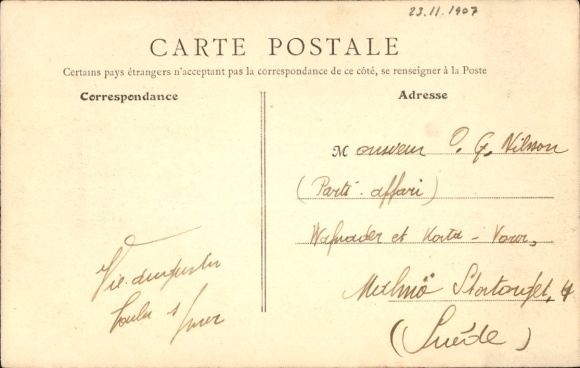 23.11.1907
CARTE POSTALE
Certains pays étrangers n'acceptant pas la correspondance de ce côté, se renseigner à la Poste
Correspondance
Adresse
Monsieur O. G. Nilsson
(Parti-affari)
et Korta-Varor,
Malmö Stortorget, 4
(Suède)